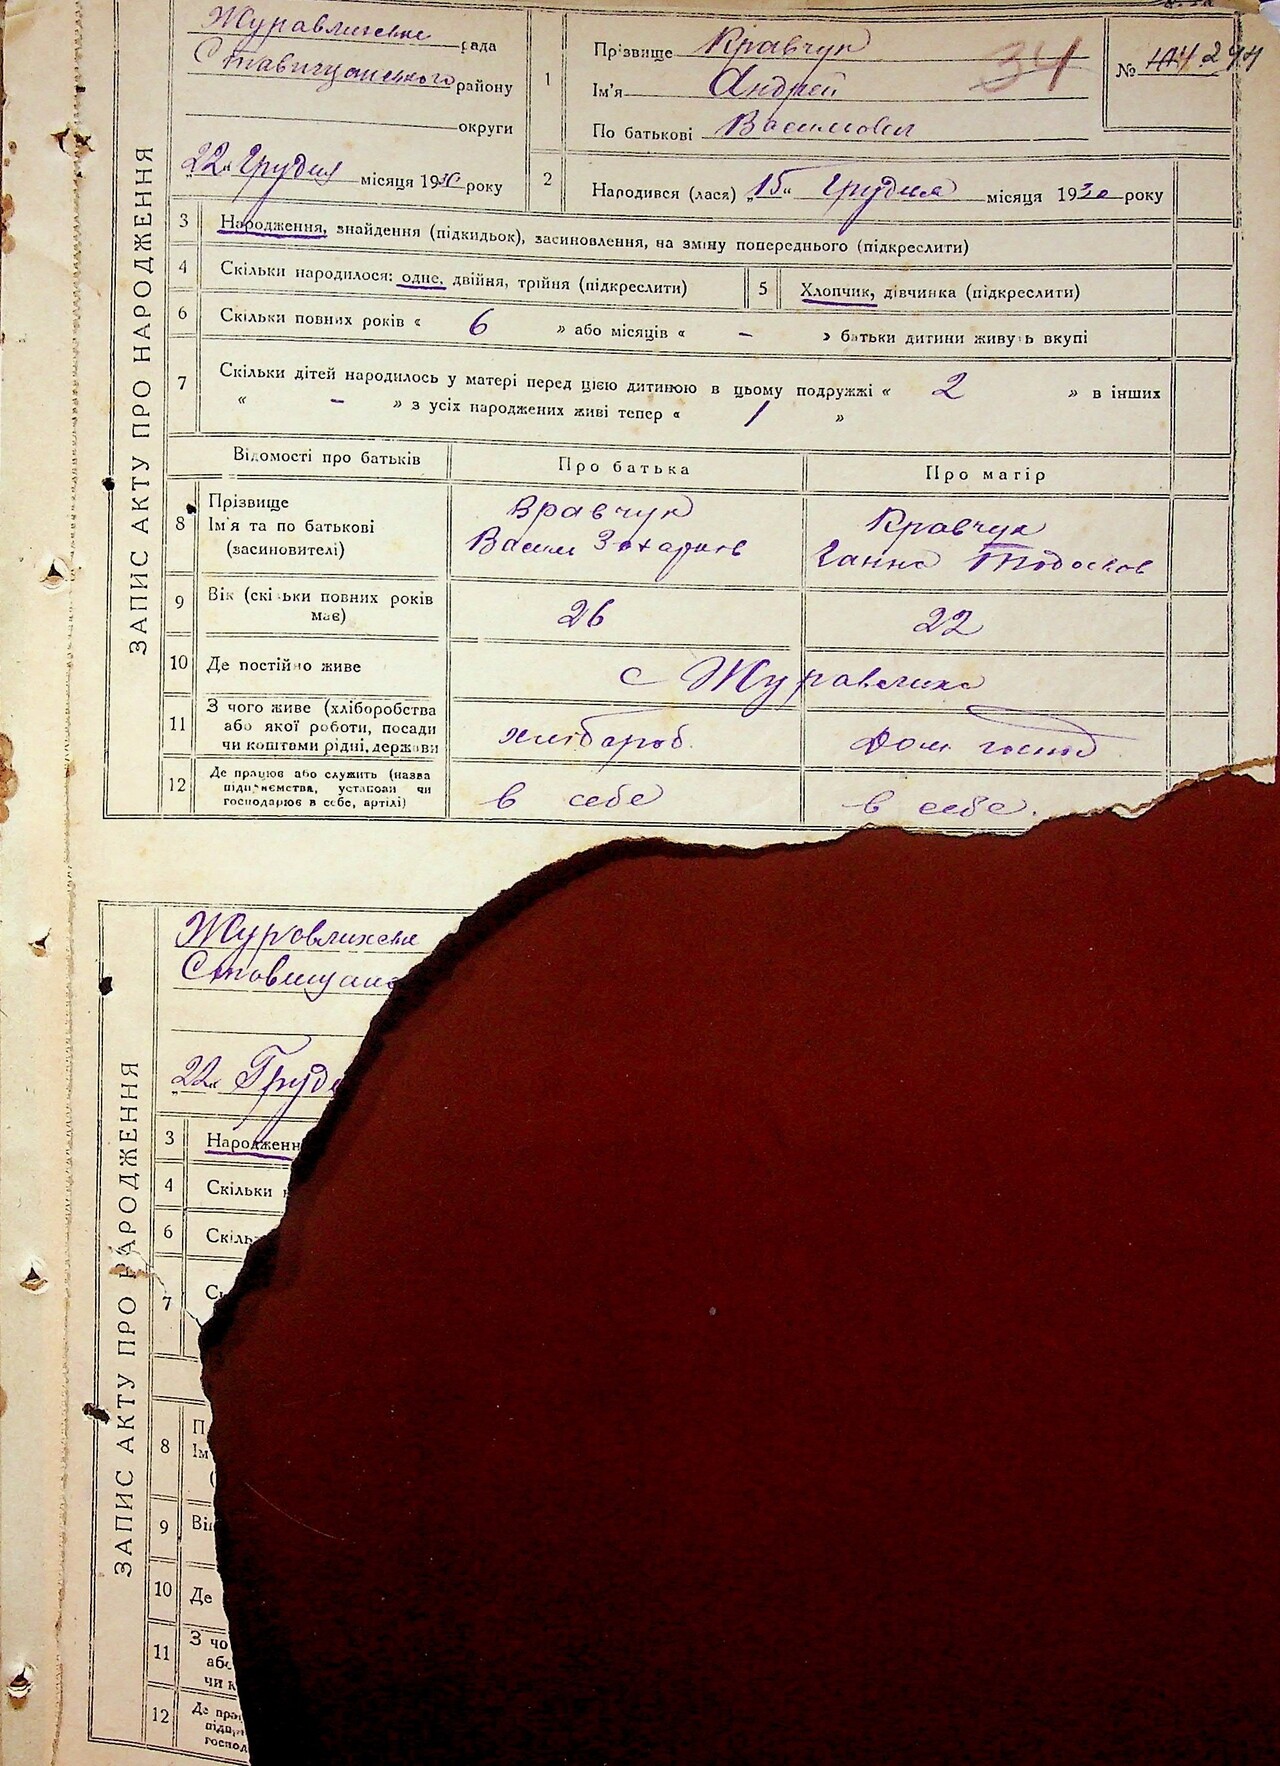 Журавлихська рада
Ставищанського району
округи
22 Грудня місяця 1930 року
1
Прізвище Кравчук
Ім'я Андрей
По батькові Васильович
34
№ 244
2
Народився (лася) „15“ Грудня місяця 1930 року
ЗАПИС АКТУ ПРО НАРОДЖЕННЯ
3 Народження, знайдення (підкидьок), засиновлення, на зміну попереднього (підкреслити)
4 Скільки народилося: одне, двійня, трійня (підкреслити)
5 Хлопчик, дівчинка (підкреслити)
6 Скільки повних років « 6 » або місяців « - » батьки дитини живуть вкупі
7 Скільки дітей народилось у матері перед цією дитиною в цьому подружжі « 2 » в інших
« - » з усіх народжених живі тепер « 1 »
Відомості про батьків Про батька Про матір
8 Прізвище
Ім'я та по батькові
(засиновителі)
Кравчук
Васил Захаров
Кравчук
Ганна Тодосков
9 Вік (скільки повних років
має)
26 22
10 Де постійно живе с Журавлиха
11 З чого живе (хліборобства
або якої роботи, посади
чи коштами рідні, держави
хлібороб. Дом. господ
12 Де працює або служить (назва
підприємства, установи чи
господарює в себе, артілі)
в себе в себе.
Журовлихська
Стовищанс
22 „ Груд
ЗАПИС АКТУ ПРО НАРОДЖЕННЯ
3 Народженн
4 Скільки
6 Скіль
7 Ск
8 П
Ім
(
9 Ві
10 Де
11 З чо
або
чи к
12 Де пра
підпр
господ